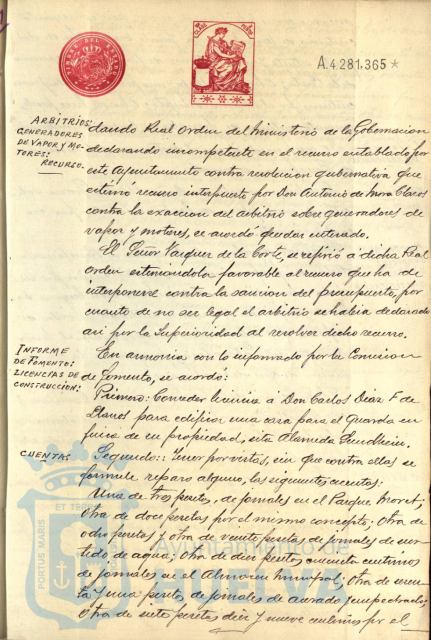 A.4.281,365*
ARBITRIOS:
GENERADORES
DE VAPOR Y MO-
TORES:
RECURSO.
dando Real Orden del Ministerio de la Gobernacion
declarando incompetente en el recurso entablado por
este Ayuntamiento contra resolucion gubernativa que
estimó recurso interpuesto por Don Antonio de Mora Claros
contra la exaccion del arbitrio sobre generadores de
vapor y motores, se acordó quedar enterado.
El Señor Vazquez de la Corte, se refirió a dicha Real
Orden estimandola favorable al recurso que ha de
interponerse contra la sancion del presupuesto, por
cuanto de no ser legal el arbitrio se habia declarado
asi por la Superioridad al resolver dicho recurso.
INFORME
DE FOMENTO:
LICENCIAS DE
CONSTRUCCION:
En armonia con lo informado por la Comision
de Fomento, se acordó:
Primero: Conceder licencia a Don Carlos Diaz F. de
Llanos para edificar una casa para el Guarda en
finca de su propiedad, sita Alameda Sundheim.
CUENTAS
Segundo: Tener por vistas, sin que contra ellas se
formule reparo alguno, las siguientes cuentas:
Una de tres pesetas, de jornales en el Parque Moret;
otra de doce pesetas por el mismo concepto; otra de
ocho pesetas y otra de veinte pesetas de jornales de sur-
tido de agua; otra de diez pesetas cincuenta centimos
de jornales en el Almacen municipal; otra de
ta y una pesetas, de jornales de acerado y empedrados;
otra de siete pesetas diez y nueve centimos por el
PORTUS MARIS
ET TER
Ayuntamiento de